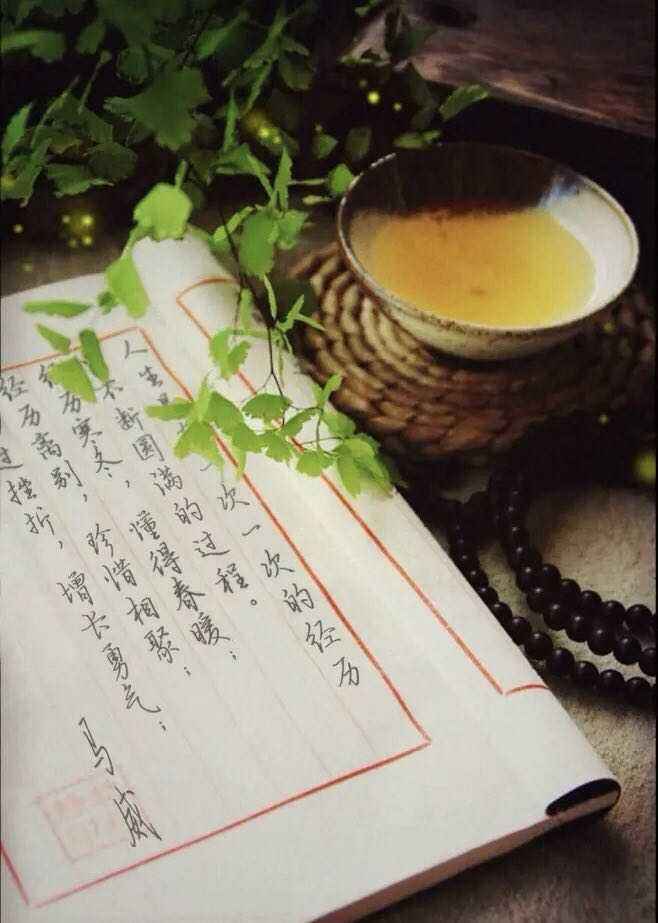 人生是一次一次的经历
不断圆满的过程。
经历寒冬，懂得春暖；
经历离别，珍惜相聚；
过挫折，增长勇气；
马威